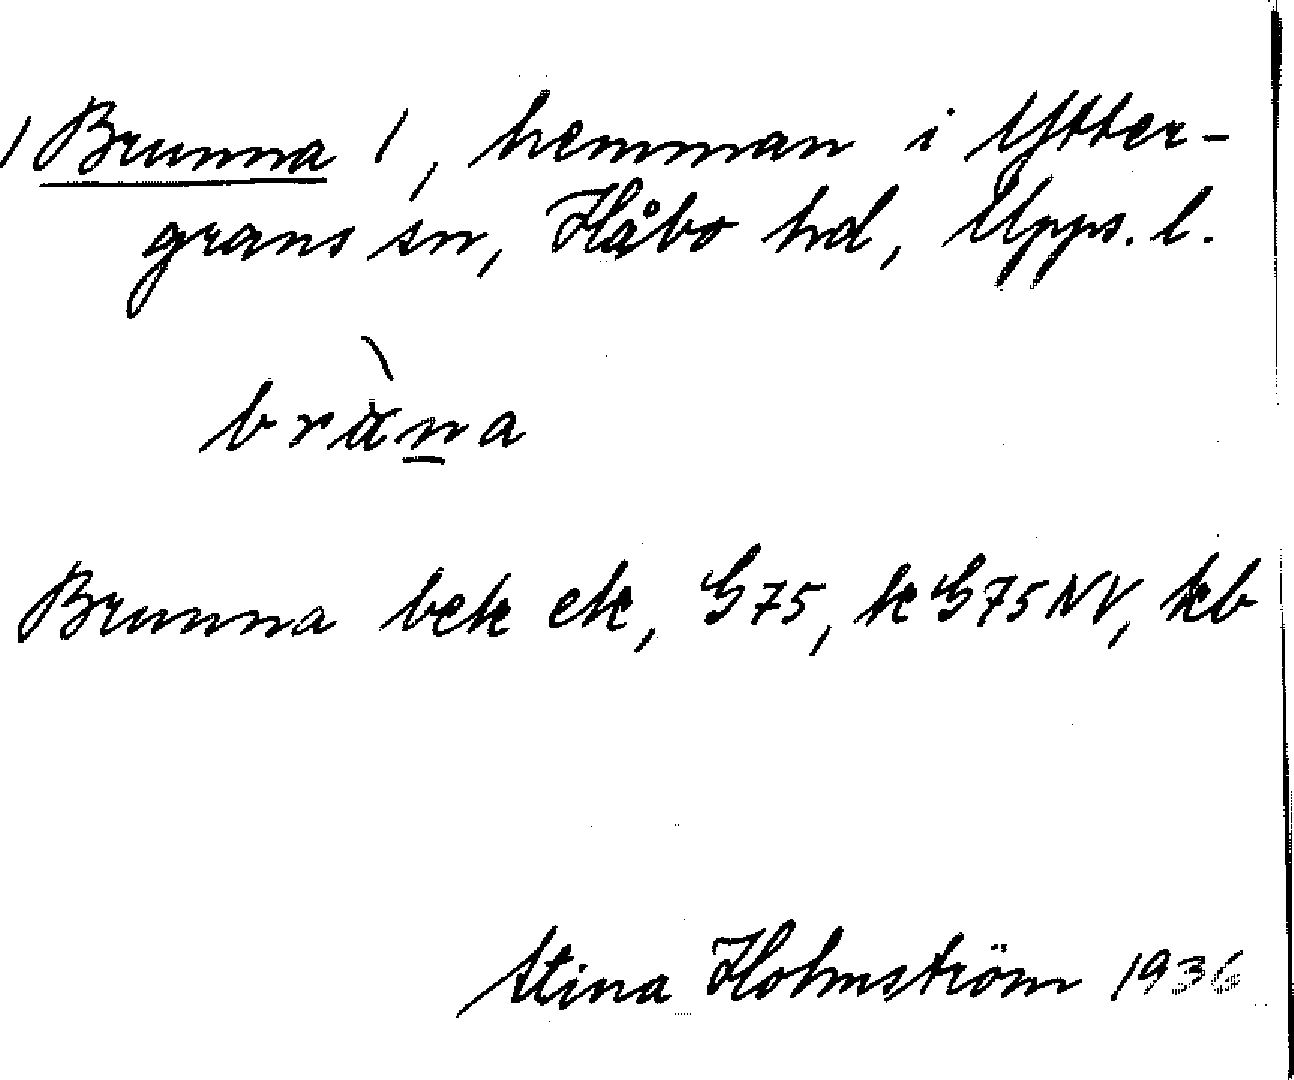 /Brunna/, hemman i Ytter-
grans sn, Håbo hd, Upps. l.
bràn̲a
Brunna bek ek, G75, kG75NV, kb
Stina Holmström 1936